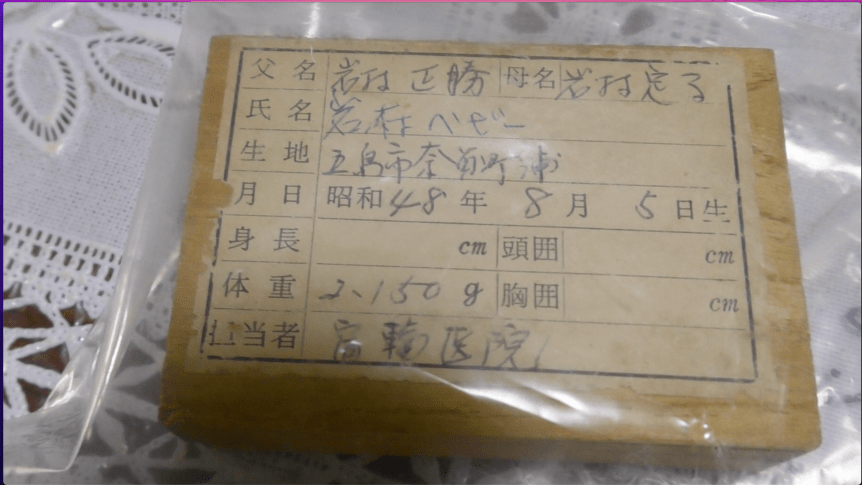 父名 岩村 正勝 母名 岩村定子
氏名 岩村ベビー
生地 五島市奈留町浦
月日 昭和48年 8月 5日生
身長 cm 頭囲 cm
体重 2,150g 胸囲 cm
担当者 医院